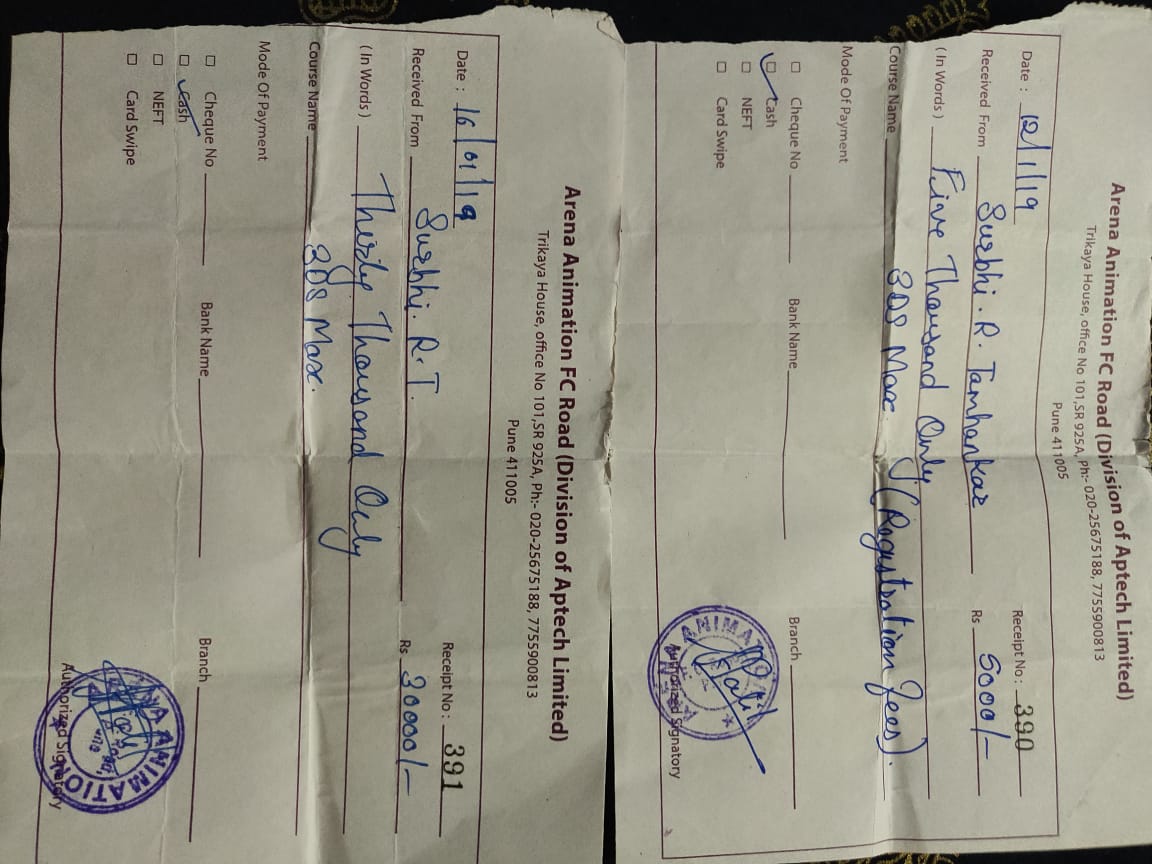 Arena Animation FC Road (Division of Aptech Limited)
Trikaya House, office No 101,SR 925A, Ph:- 020-25675188, 7755900813
Pune 411005
Date : 12/1/19 Receipt No : 390
Received From Surbhi. R. Tamhankar Rs 5000/-
( In Words ) Five Thousand Only
Course Name 3DS Max (Registration fees).
Mode Of Payment
Cheque No Bank Name Branch
Cash
NEFT
Card Swipe Authorized Signatory
ANIMATION
Arena Animation FC Road (Division of Aptech Limited)
Trikaya House, office No 101,SR 925A, Ph:- 020-25675188, 7755900813
Pune 411005
Date : 16/01/19 Receipt No : 391
Received From Surbhi. R.T. Rs 30000/-
( In Words ) Thirty Thousand Only
Course Name 3DS Max.
Mode Of Payment
Cheque No Bank Name Branch
Cash
NEFT
Card Swipe Authorized Signatory
ANIMATION